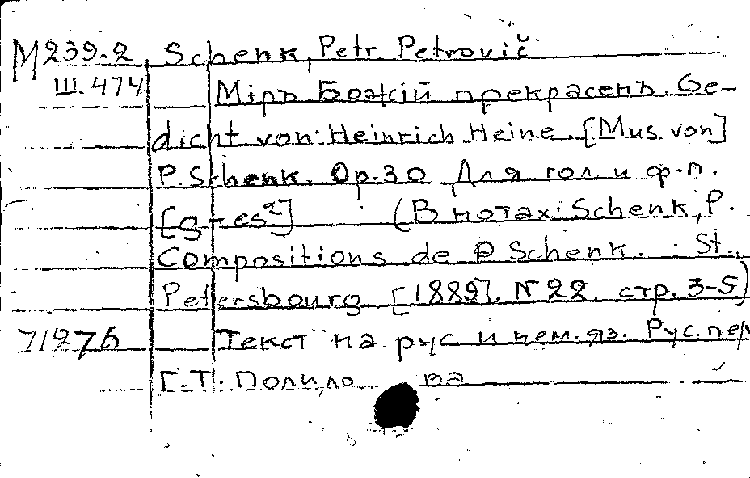 M239.2 Schenk, Petr Petrovič
Ш.474 Мiръ Божiй прекрасенъ. Ge-
dicht von Heinrich Heine [Mus. von]
P. Schenk. Op.30 Для гол. и ф-п.
[g-es²] (В нотах: Schenk, P.
Compositions de P Schenk. St.,
Petersbourg [1889]. N 22. стр. 3-5)
71275 Текст на рус и нем. яз. Рус. пер
Г.Т. Полило ва